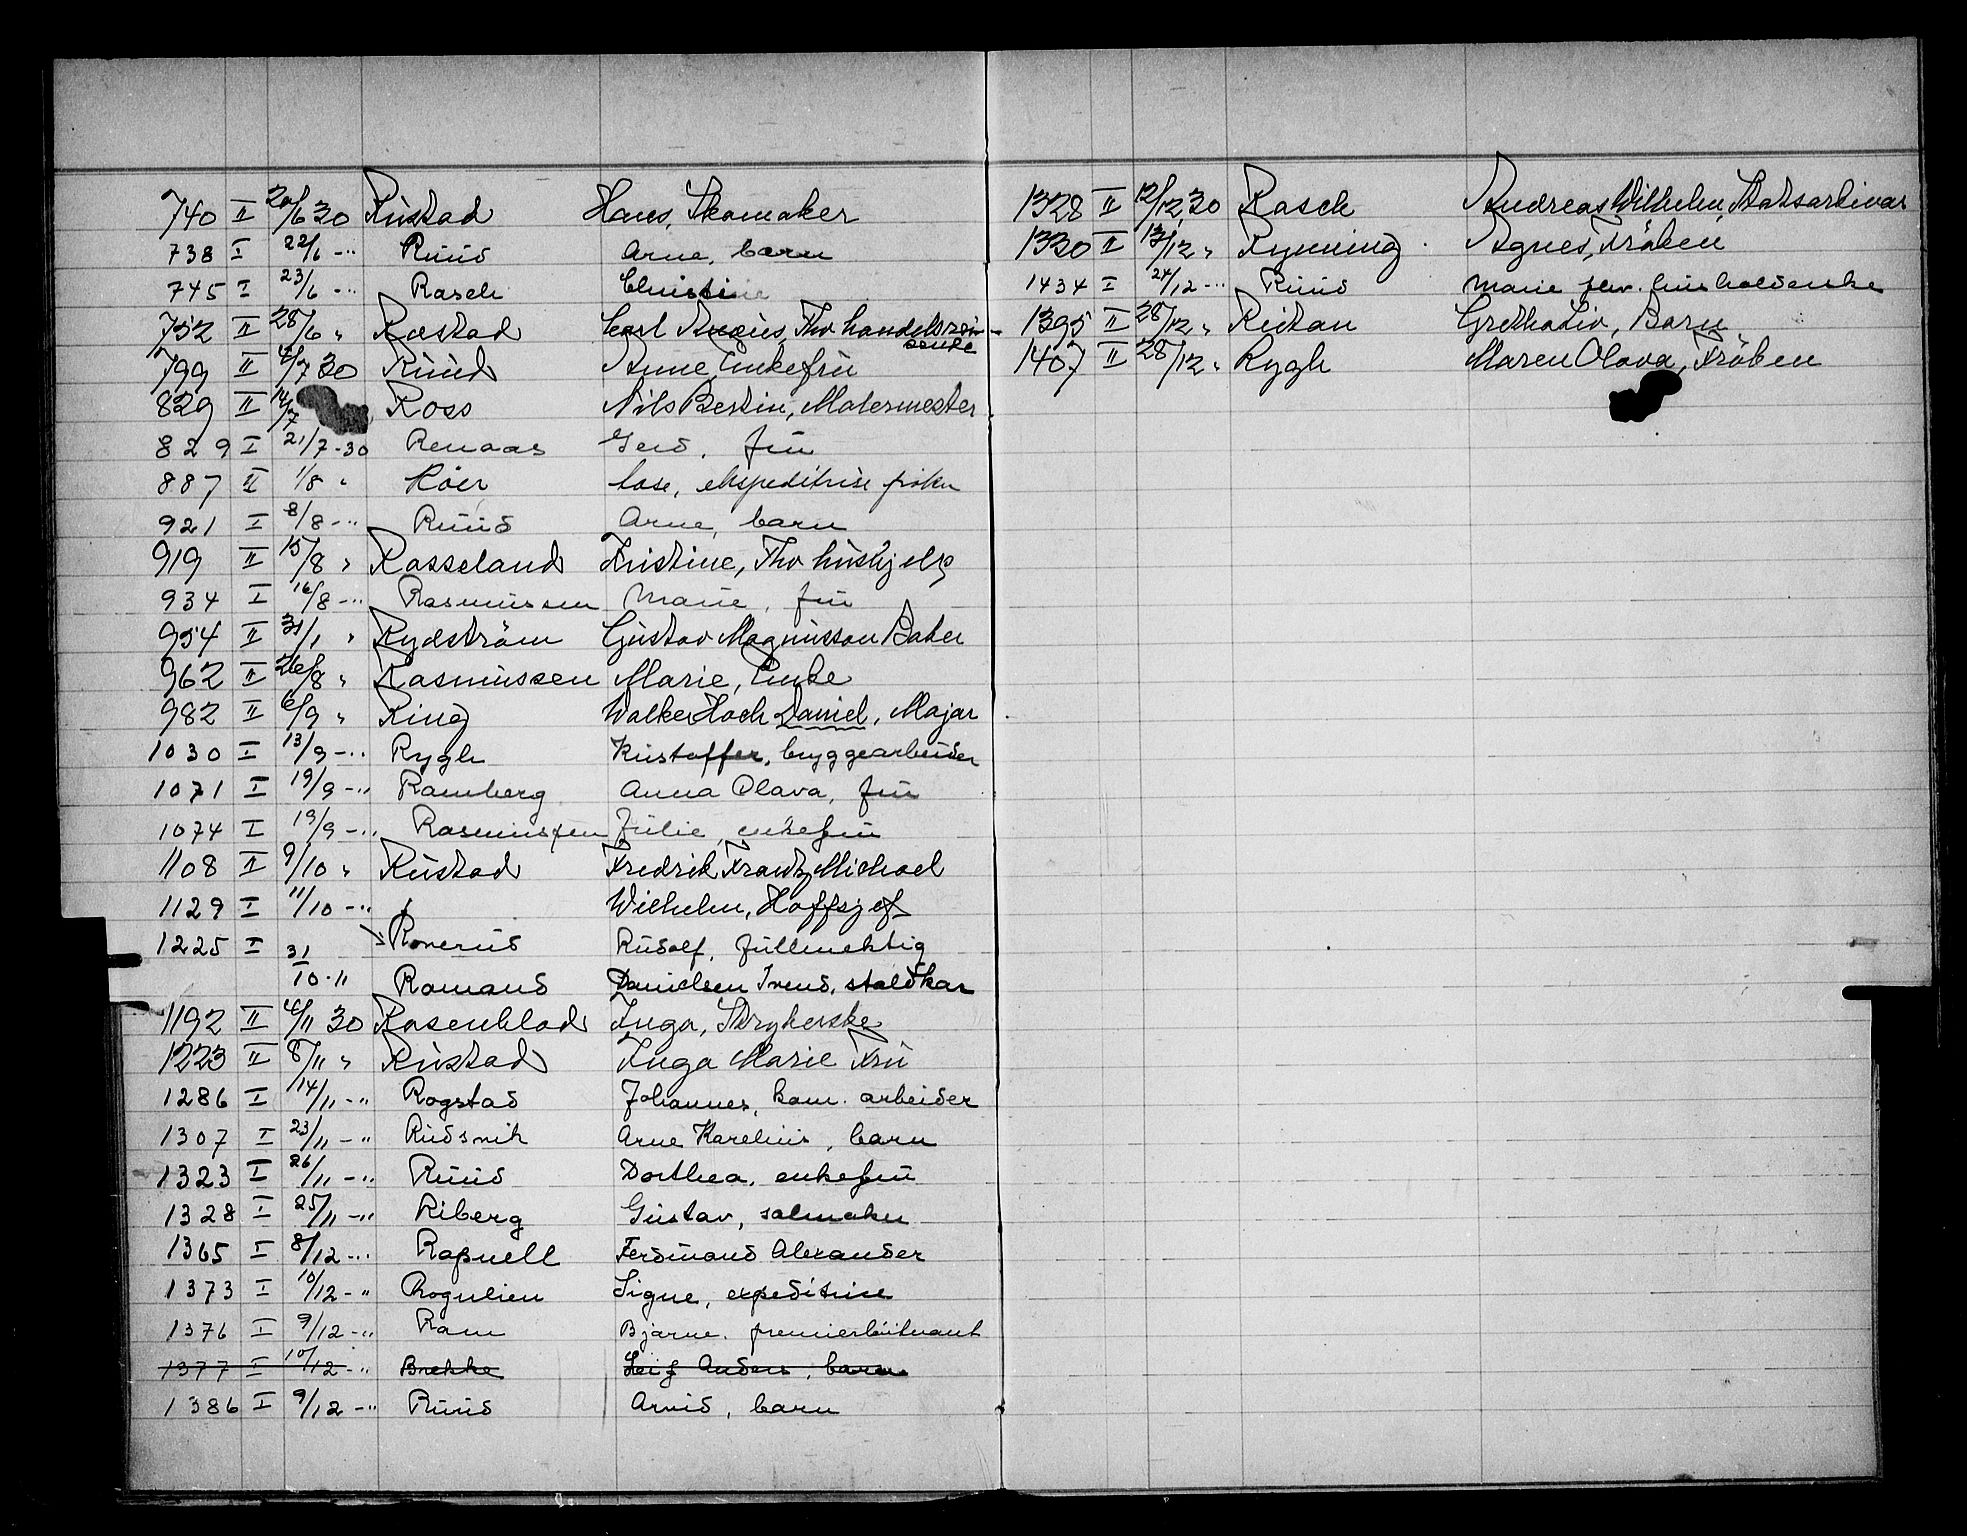 740 II 20/6 30 Rustad Hans, Skomaker
738 I 22/6 -" Ruud Arne, barn
745 I 23/6 -" Rasch Christine
752 II 28/6 " Ræstad Carl, Thv handelsrei-
sende
799 II 4/7 30 Ruud Anne Enkefru
829 II 14/7 Ross Nils Bertin, Malermester
829 I 21/7 -30 Renaas Gerd, fru
887 II 1/8 " Röer Aase, ekspeditrise frøken
921 I 8/8 -" Ruud Arne, barn
919 II 15/8 " Rosseland Kristine, Thv hushjelp
934 I 16/8 -" Rasmussen Marie, fru
954 II 31/1 " Rydström Gustav Magnusson Baker
962 II 26/8 " Rasmussen Marie, Enke
982 II 6/9 " Ring Walker Hoch Daniel, Major
1030 I 13/9 -" Rygh Kristoffer, bryggearbeider
1071 I 19/9 -" Ramberg Anna Olava, fru
1074 I 19/9 -" Rasmussen Julie, enkefru
1108 II 9/10 " Rustad Fredrik Frantz Michael
1129 I 11/10 -" Wilhelm, Hoffsjef
1225 I 31 Roverud Rudolf, fullmektig
10 -" Romand Danielsen Trend, staldkar
1192 II 4/11 30 Rosenblad Inga, Strykerske
1223 II 8/11 " Rustad Inga Marie Fru
1286 I 14/11 -" Rogstad Johannes, kom. arbeider
1307 I 23/11 -" Rudsvik Arne Karelius, barn
1323 I 26/11 -" Ruud Dorthea, enkefru
1328 I 25/11 -" Riberg Gustav, salmaker
1365 I 8/12 -" Ferdinand Alexander
1373 I 10/12 -" Rognlien Signe, expeditrise
1376 I 9/12 -" Ram Bjarne, premierløitnant
1377 I 10/12 -" Brekke Leif Anders, barn
1386 I 9/12 -" Ruud Arvid, barn
1328 II 12/12 30 Rasch Andreas Wilhelm, Statsarkivar
1330 II 13/12 " Rynning Agnes, Fröken
1434 I 24/12 -" Ruud Marie fhv. husholderske
1395 II 28/12 " Ristan Gretha Liv, Barn
1407 II 28/12 " Rygh Maren Olava, Fröken